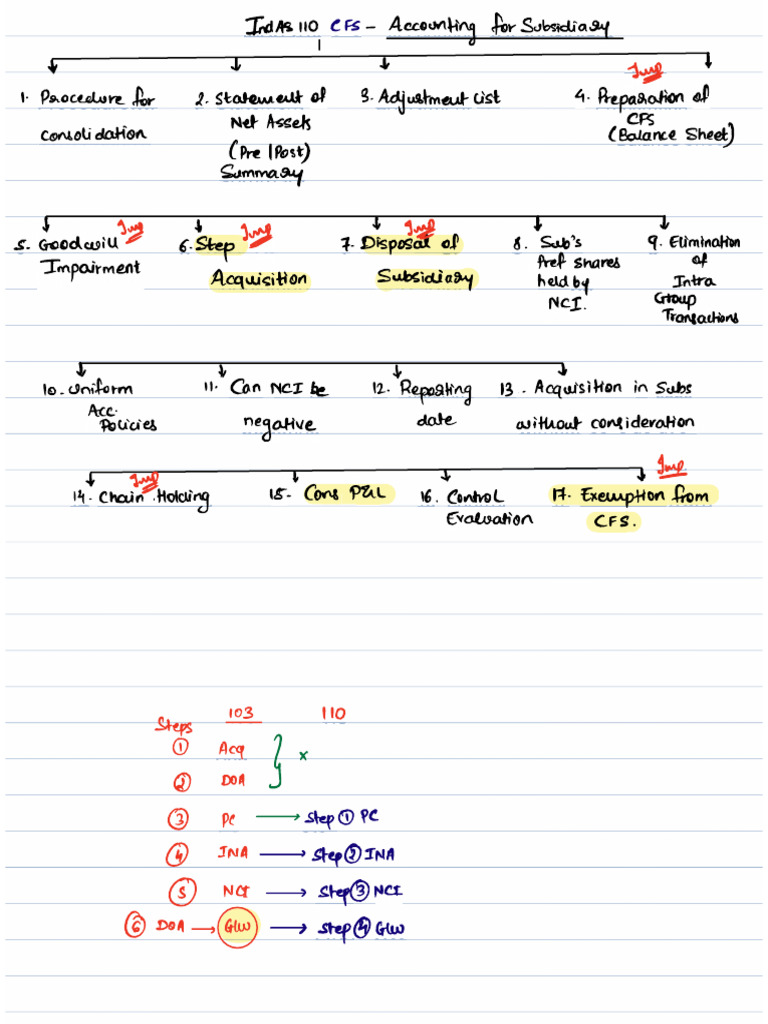 IndAS 110 CFS - Accounting for Subsidiary
Imp
1. Procedure for 2. Statement of 3. Adjustment list 4. Preparation of
consolidation Net Assets CFS
(Pre | Post) (Balance Sheet)
Summary
Imp Imp Imp
5. Goodwill 6. Step 7. Disposal of 8. Sub's 9. Elimination
Impairment Acquisition Subsidiary Pref shares of
held by Intra
NCI. Group
Transactions
10. Uniform 11. Can NCI be 12. Reporting 13. Acquisition in Subs
Acc. negative date without consideration
Policies
Imp Imp
14. Chain Holding 15. Cons P&L 16. Control 17. Exemption from
Evaluation CFS.
Steps 103 110
1 Acq x
2 DOA
3 PC → Step 1 PC
4 INA → Step 2 INA
5 NCI → Step 3 NCI
6 DOA → G/w → Step 4 G/w